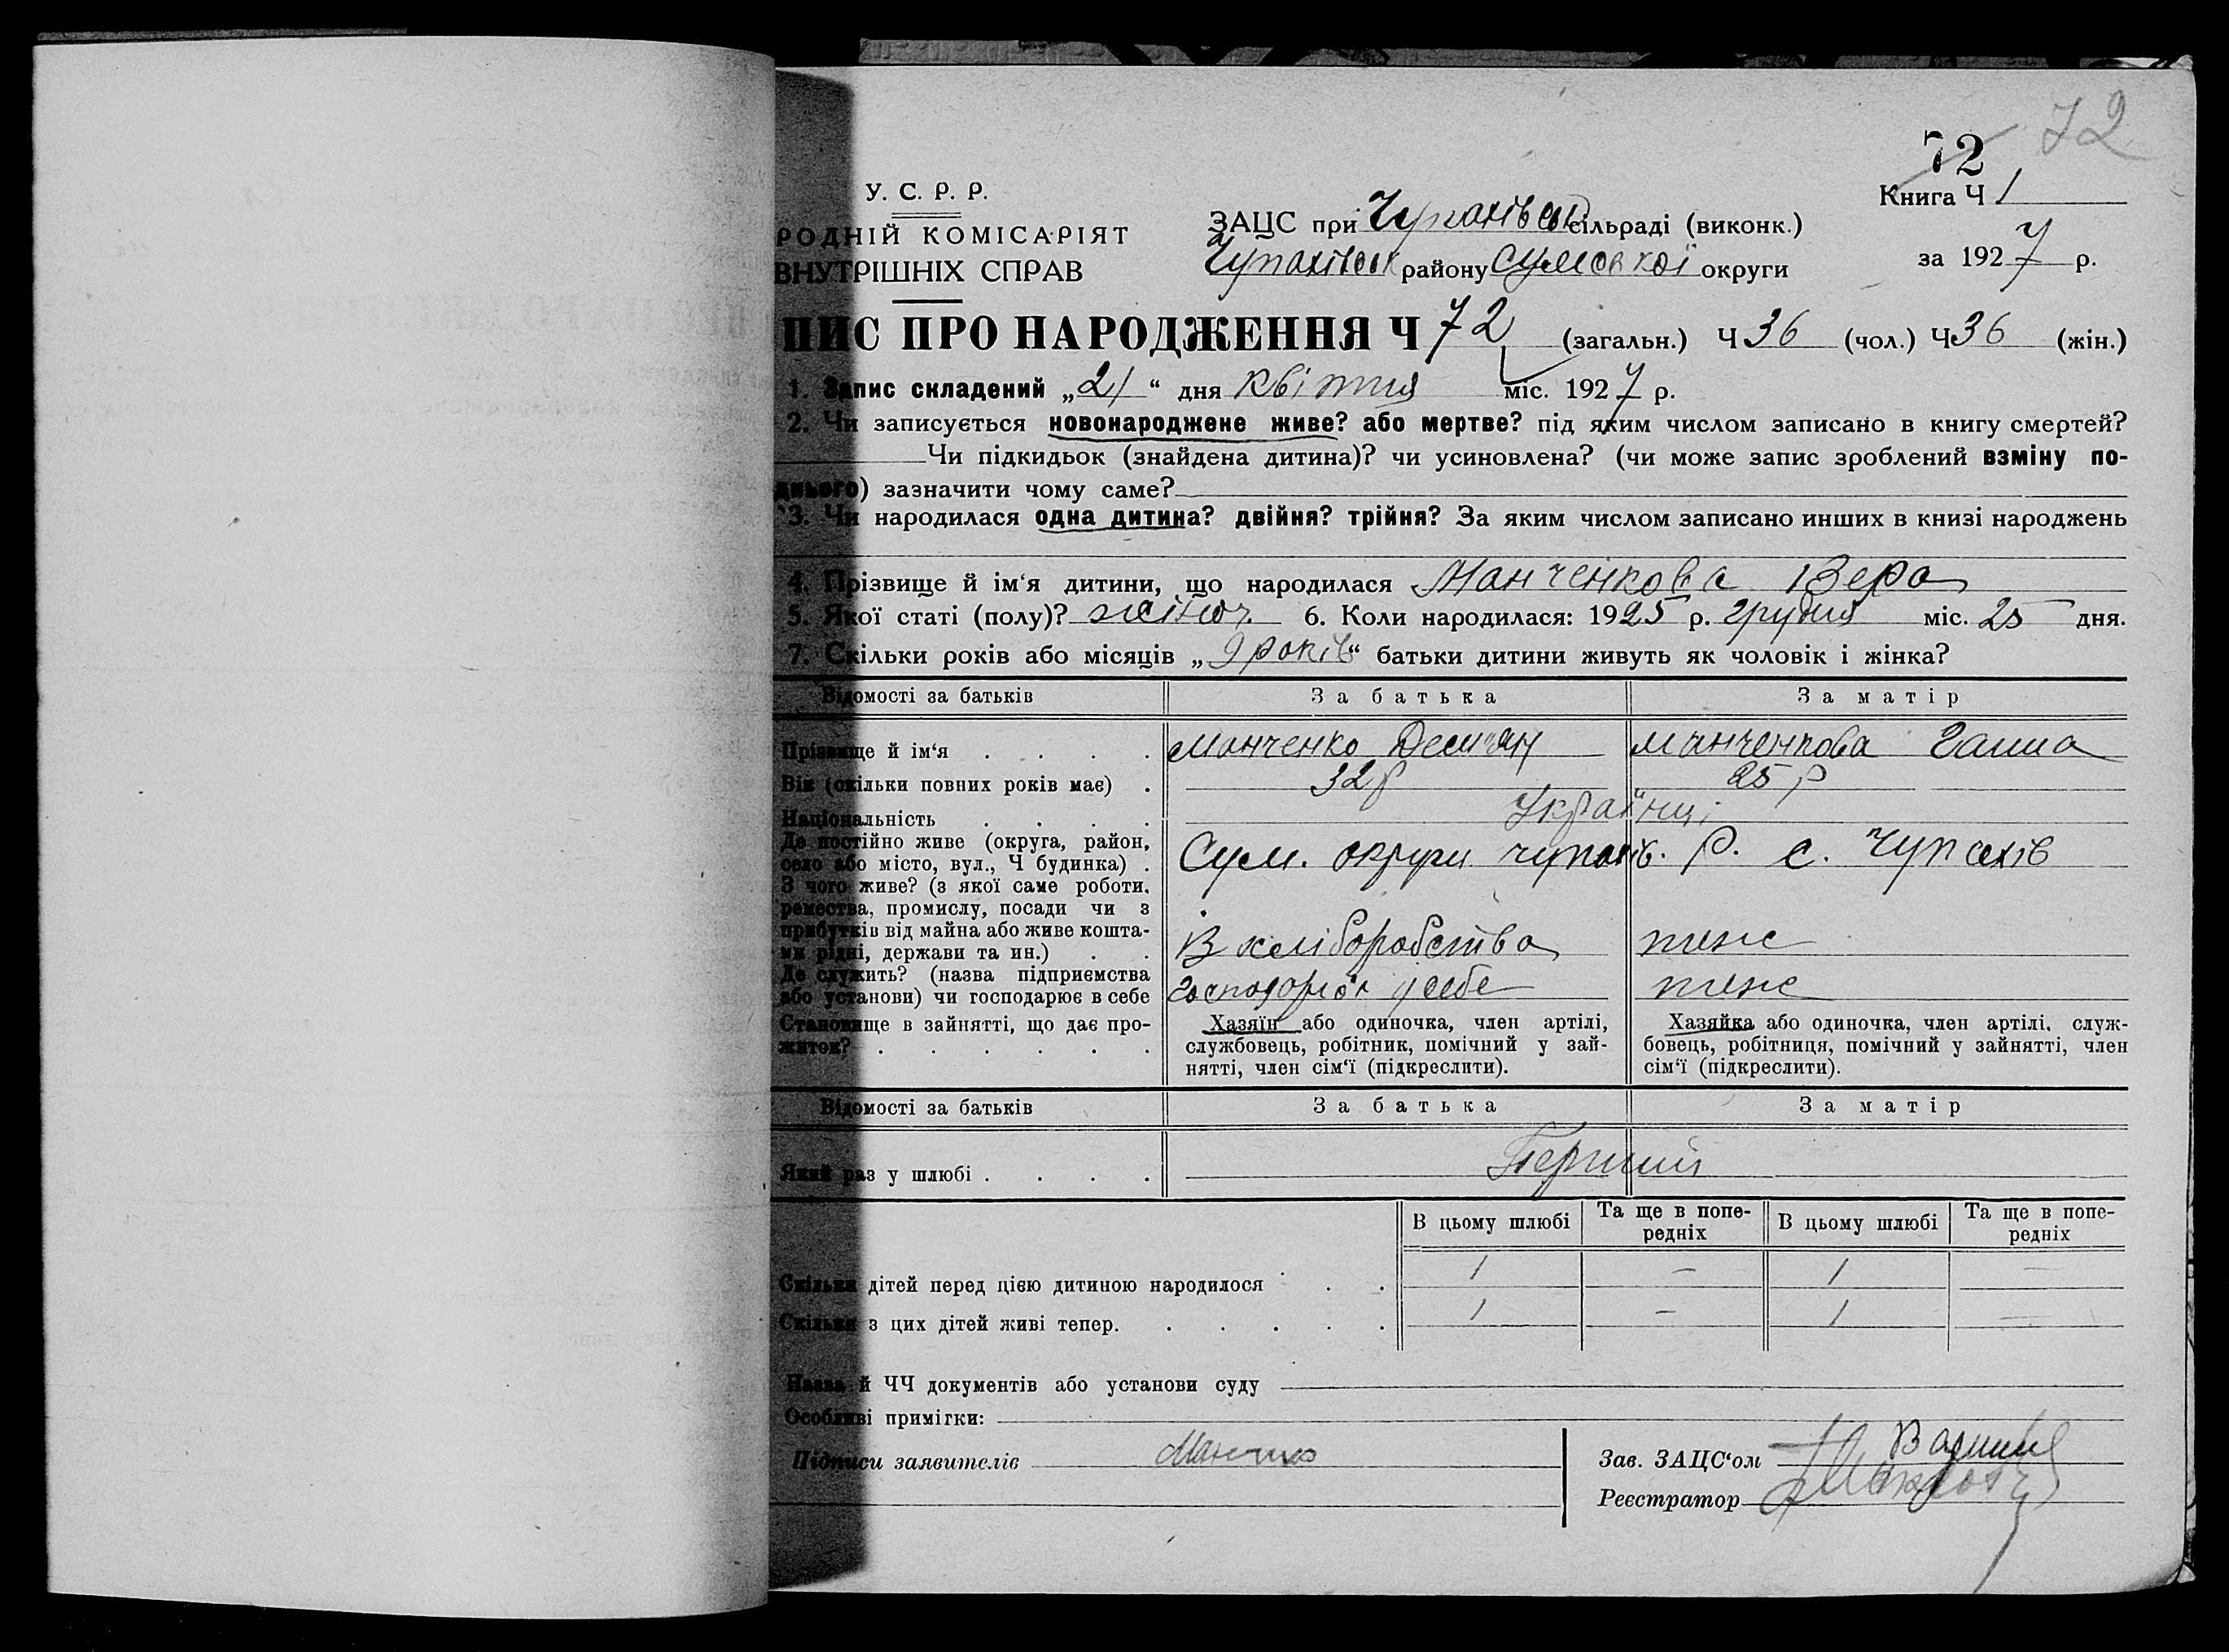 72 72
У. С. Р. Р.
Книга Ч 1
РОДНІЙ КОМІСАРІЯТ
ВНУТРІШНІХ СПРАВ
ЗАЦС при Чупахівськ сільраді (виконк.)
Чупахівськ району Сумської округи
за 1927 р.
ПИС ПРО НАРОДЖЕННЯ Ч 72 (загальн.) Ч 36 (чол.) Ч 36 (жін.)
1. Запис складений „21“ дня квітня міс. 1927 р.
2. Чи записується новонароджене живе? або мертве? під яким числом записано в книгу смертей?
Чи підкидьок (знайдена дитина)? чи усиновлена? (чи може запис зроблений взміну по-
днього) зазначити чому саме?
3. Чи народилася одна дитина? двійня? трійня? За яким числом записано инших в книзі народжень
4. Прізвище й ім‘я дитини, що народилася Манченкова Вера
5. Якої статі (полу)? жіноч. 6. Коли народилася: 1925 р. грудня міс. 25 дня.
7. Скільки років або місяців „9 років“ батьки дитини живуть як чоловік і жінка?
Відомості за батьків За батька За матір
Прізвище й ім‘я . . . . Манченко Демян Манченкова Ганна
Вік (скільки повних років має) . 32 р 25 р
Національність . . . . Українці
Де постійно живе (округа, район,
село або місто, вул., Ч будинка) . Сум. округи чупахів. р. с. Чупахів
З чого живе? (з якої саме роботи,
ремества, промислу, посади чи з
прибутків від майна або живе кошта-
ми рідні, держави та ин.) . . З хліборобства теж
Де служить? (назва підприємства
або установи) чи господарює в себе у себе теж
Становище в зайнятті, що дає про-
житок? . . . . . .
Хазяїн або одиночка, член артілі,
службовець, робітник, помічний у зай-
нятті, член сім‘ї (підкреслити).
Хазяйка або одиночка, член артілі, служ-
бовець, робітниця, помічний у зайнятті, член
сім‘ї (підкреслити).
Відомості за батьків За батька За матір
Який раз у шлюбі . . . . Перший
В цьому шлюбі Та ще в попе-
редніх В цьому шлюбі Та ще в попе-
редніх
Скільки дітей перед цією дитиною народилося . . 1 — 1 —
Скільки з цих дітей живі тепер. . . . . . 1 — 1 —
Назва й ЧЧ документів або установи суду
Особливі примітки:
Підписи заявителів
Зав. ЗАЦС‘ом
Реєстратор